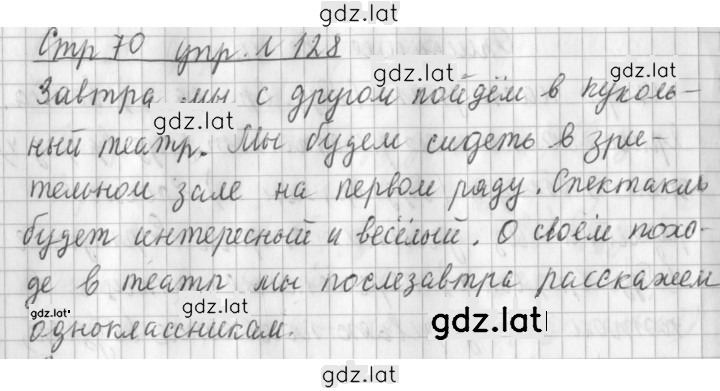 gdz.lat
Стр 70 упр. № 128
gdz.lat
Завтра мы с другом пойдём в куколь-
gdz.lat
ный театр. Мы будем сидеть в зри-
тельном зале на первом ряду. Спектакль
будет интересный и весёлый. О своём похо-
де в театр мы послезавтра расскажем
gdz.lat
gdz.lat
gdz.lat
одноклассникам.
gdz.lat